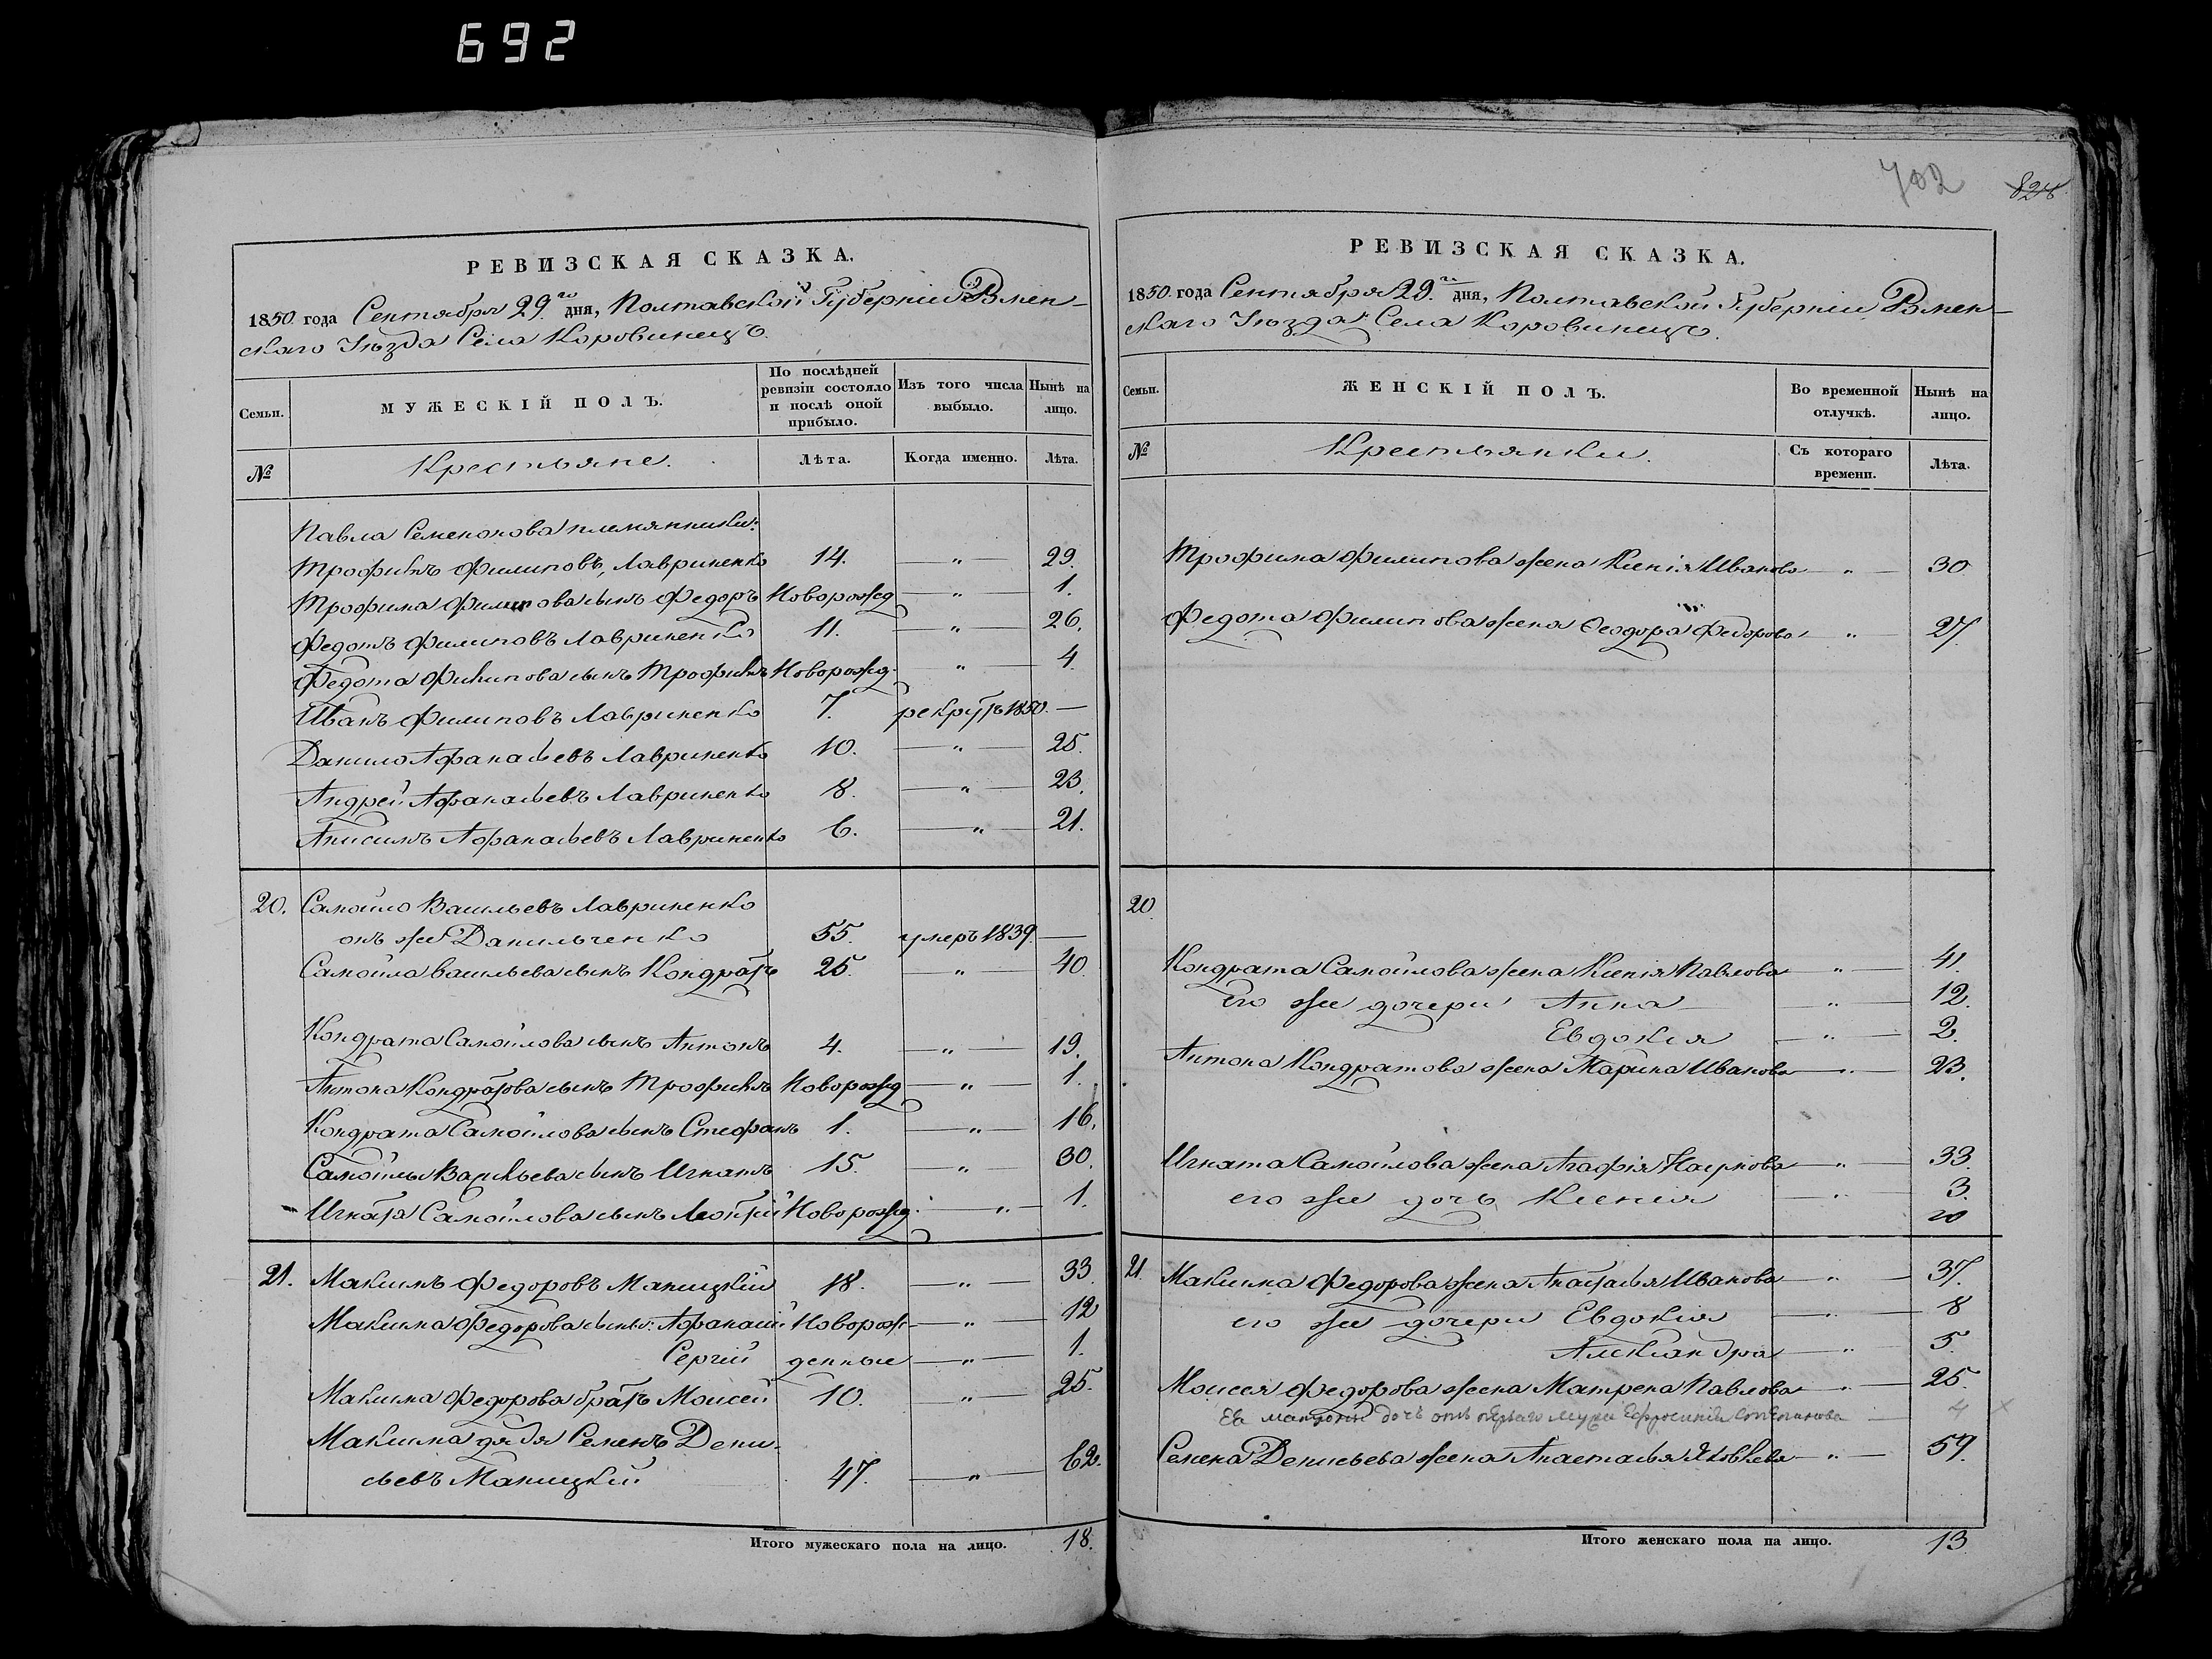 692
702
828
РЕВИЗСКАЯ СКАЗКА.
1850 года Сентября 29го дня, Полтавской Губерніи Ромен-
скаго Уѣзда Села Коровинецъ.
Семьи. МУЖЕСКІЙ ПОЛЪ. По послѣдней ревизіи состояло и послѣ оной прибыло. Изъ того числа выбыло. Нынѣ на лицо.
№ Крестьяне. Лѣта. Когда именно. Лѣта.
Павла Семенова племянники:
Трофимъ Филиповъ, Лавриненко 14. — " — 29.
Трофима Филипова сынъ Федоръ Новорожд — " — 1.
Федотъ Филиповъ Лавриненко 11. — " — 26.
Федота Филипова сынъ Трофимъ Новорожд. " — 4.
Иванъ Филиповъ Лавриненко 7. рекрутъ 1850. —
Данило Афанасьевъ Лавриненко 10. — " — 25.
Андрей Афанасьевъ Лавриненко 8. — " — 23.
Анисимъ Афанасьевъ Лавриненко 6. — " — 21.
20. Самойло Васильевъ Лавриненко
онъ же Данильченко 55. умеръ 1839. —
Самойла Васильева сынъ Кондратъ 25. — " — 40.
Кондрата Самойлова сынъ Антонъ 4. — " — 19.
Антона Кондратова сынъ Трофимъ Новорожд — " — 1.
Кондрата Самойлова сынъ Стефанъ 1. — " — 16.
Самойлы Васильева сынъ Игнатъ 15. — " — 30.
Игната Самойлова сынъ Новорожд. — " — 1.
21. Максимъ Федоровъ Маницкій 18. — " — 33.
Максима Федорова сыны: Афанасій Новорож- — " — 12
Сергій денные — " — 1.
Максима Федорова братъ Моисей 10. — " — 25.
Максима дядя Семенъ Дени-
сьевъ Маницкій 47. — " — 62.
Итого мужескаго пола на лицо. 18.
РЕВИЗСКАЯ СКАЗКА.
1850 года Сентября 29го дня, Полтавской Губерніи Ромен-
скаго Уѣзда Села Коровинецъ.
Семьи. ЖЕНСКІЙ ПОЛЪ. Во временной отлучкѣ. Нынѣ на лицо.
№ Крестьянки. Съ котораго времени. Лѣта.
Трофима Филипова жена Ксенія Иванова " — 30
Федота Филипова жена Ѳеодора Федорова " — 27.
20.
Кондрата Самойлова жена Ксенія Павлова — " — 41.
его же дочери Анна — " — 12.
Евдокія — " — 2.
Антона Кондратова жена Марина Иванова — " — 23.
Игната Самойлова жена Агафія Наумова — " — 33.
его же дочь Ксенія — " — 3.
21. Максима Федорова жена Анастасья Иванова — " — 37.
его же дочери Евдокія — " — 8
Александра — " — 5.
Моисея Федорова жена Матрена Павлова — " — 25.
Ея Матроны дочь отъ перваго мужа Ефросинія Степанова — 4 ×
Семена Денисьева жена Анастасья Яковлева — " — 59.
Итого женскаго пола на лицо. 13